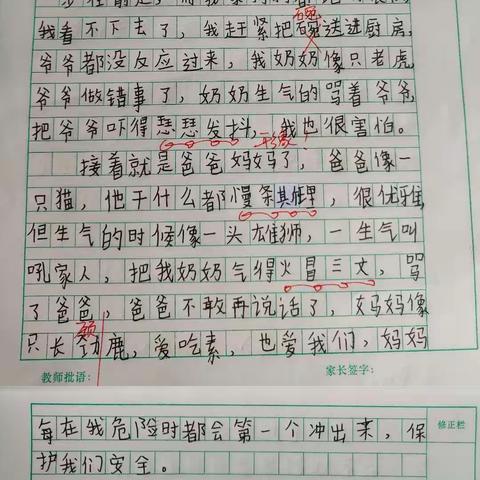 我看不下去了,我赶紧把碗送进厨房,
爷爷都没反应过来,我奶奶像只老虎,
爷爷做错事了,奶奶生气的骂着爷爷,
把爷爷吓得瑟瑟发抖,我也很害怕。
形象!
接着就是爸爸妈妈了,爸爸像一
只猫,他干什么都慢条其里,很优雅
但生气的时候像一头雄狮,一生气叫
吼家人,把我奶奶气得火冒三丈,骂
了爸爸,爸爸不敢再说话了,妈妈像
颈
只长劲鹿,爱吃素,也爱我们,妈妈
教师批语: 家长签字:
每在我危险时都会第一个冲出来,保
修正栏
护我们安全。